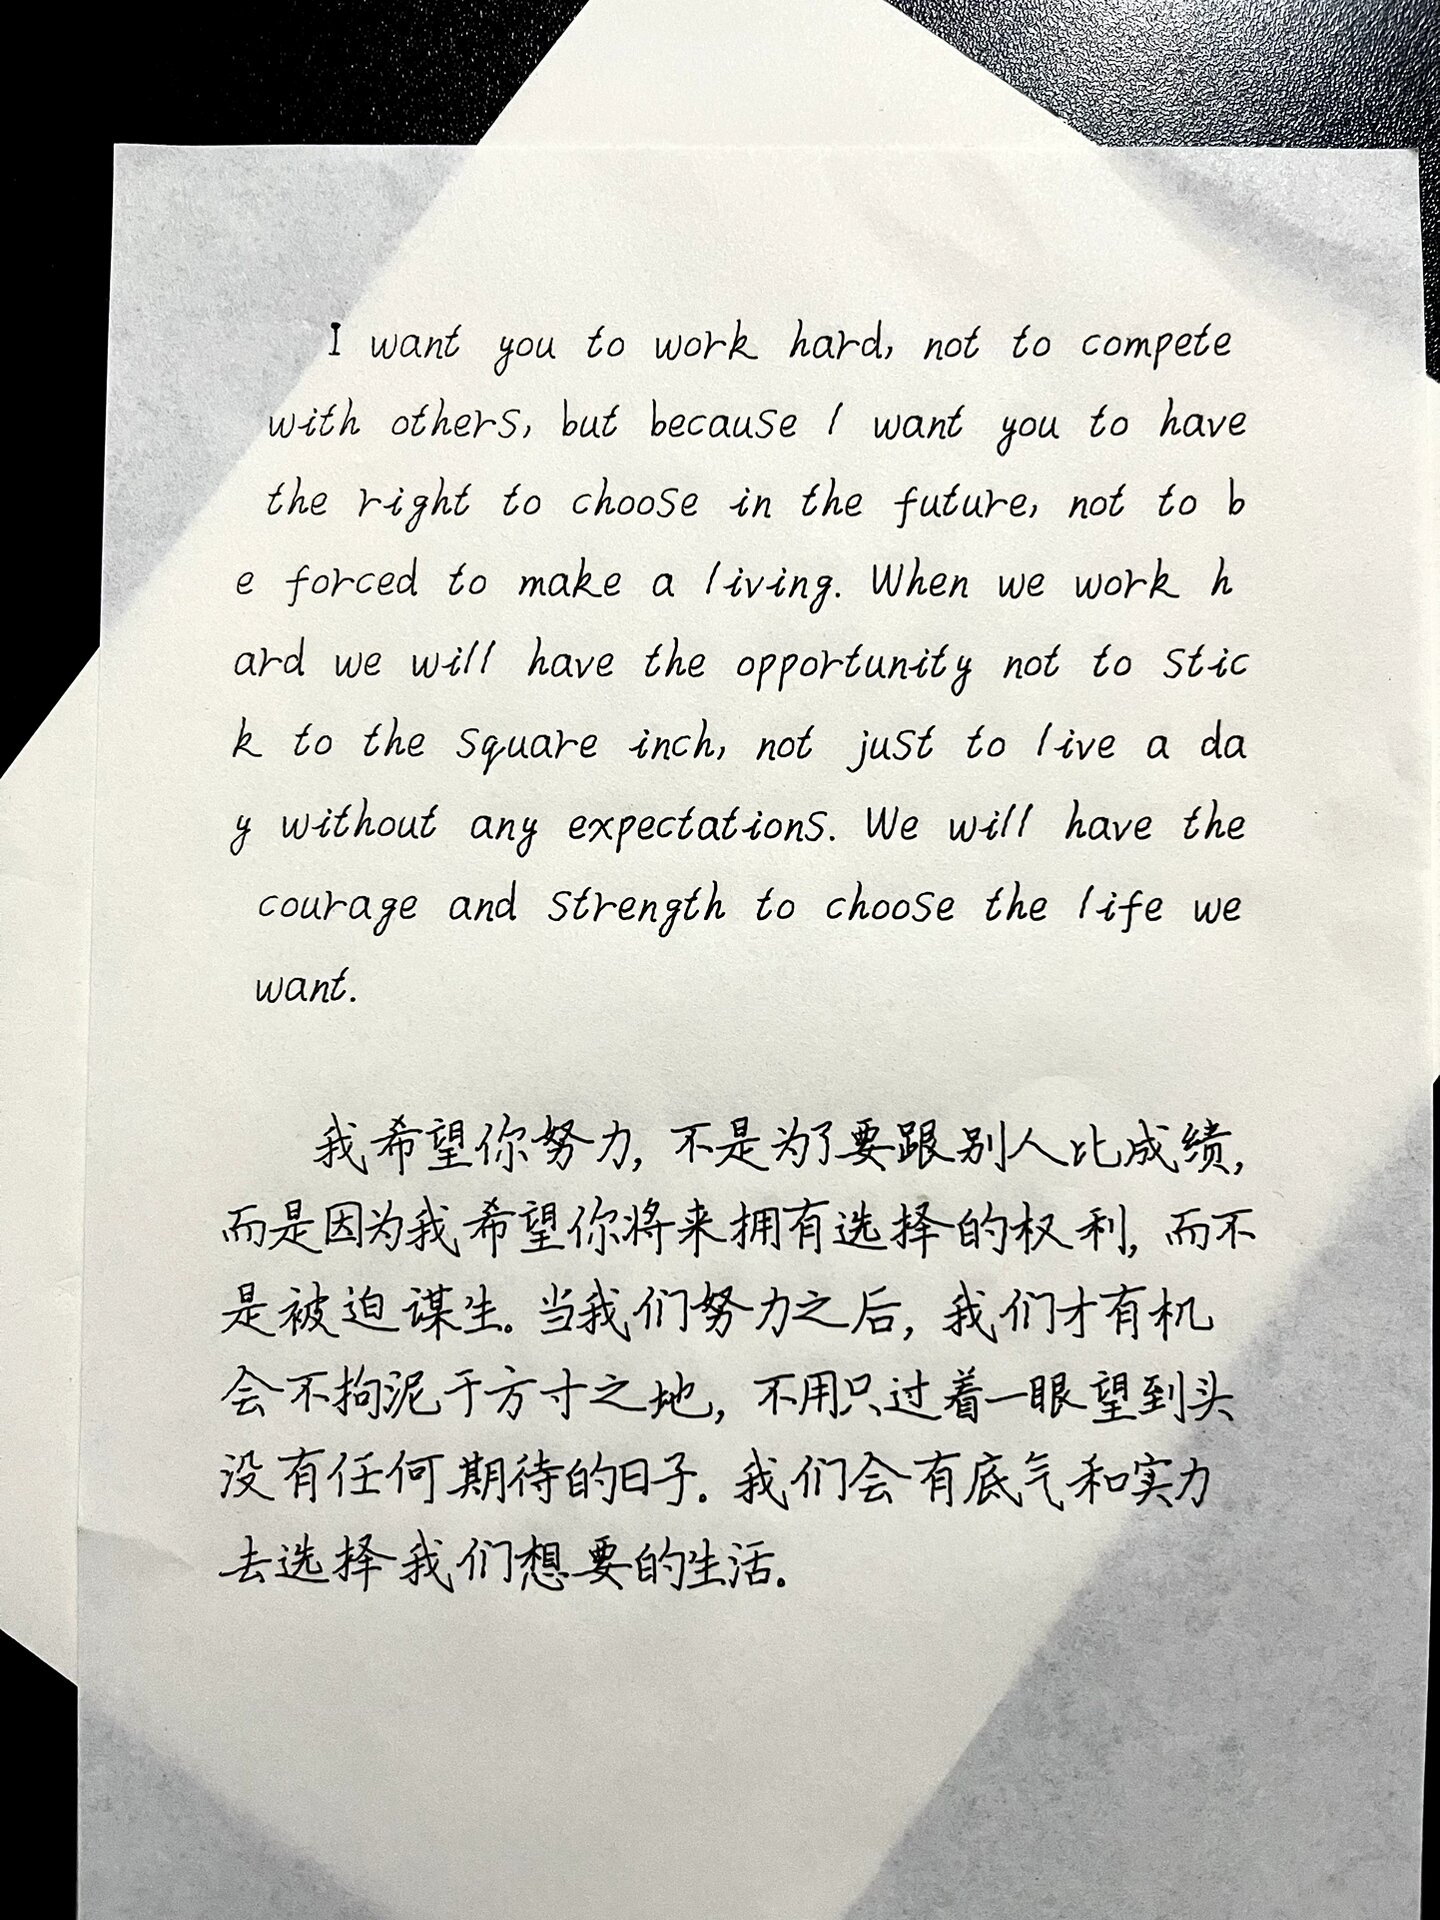 I want you to work hard, not to compete
with others, but because I want you to have
the right to choose in the future, not to b
e forced to make a living. When we work h
ard we will have the opportunity not to stic
k to the square inch, not just to live a da
y without any expectations. We will have the
courage and strength to choose the life we
want.
我希望你努力, 不是为了要跟别人比成绩,
而是因为我希望你将来拥有选择的权利, 而不
是被迫谋生。当我们努力之后, 我们才有机
会不拘泥于方寸之地, 不用只过着一眼望到头
没有任何期待的日子。我们会有底气和实力
去选择我们想要的生活。